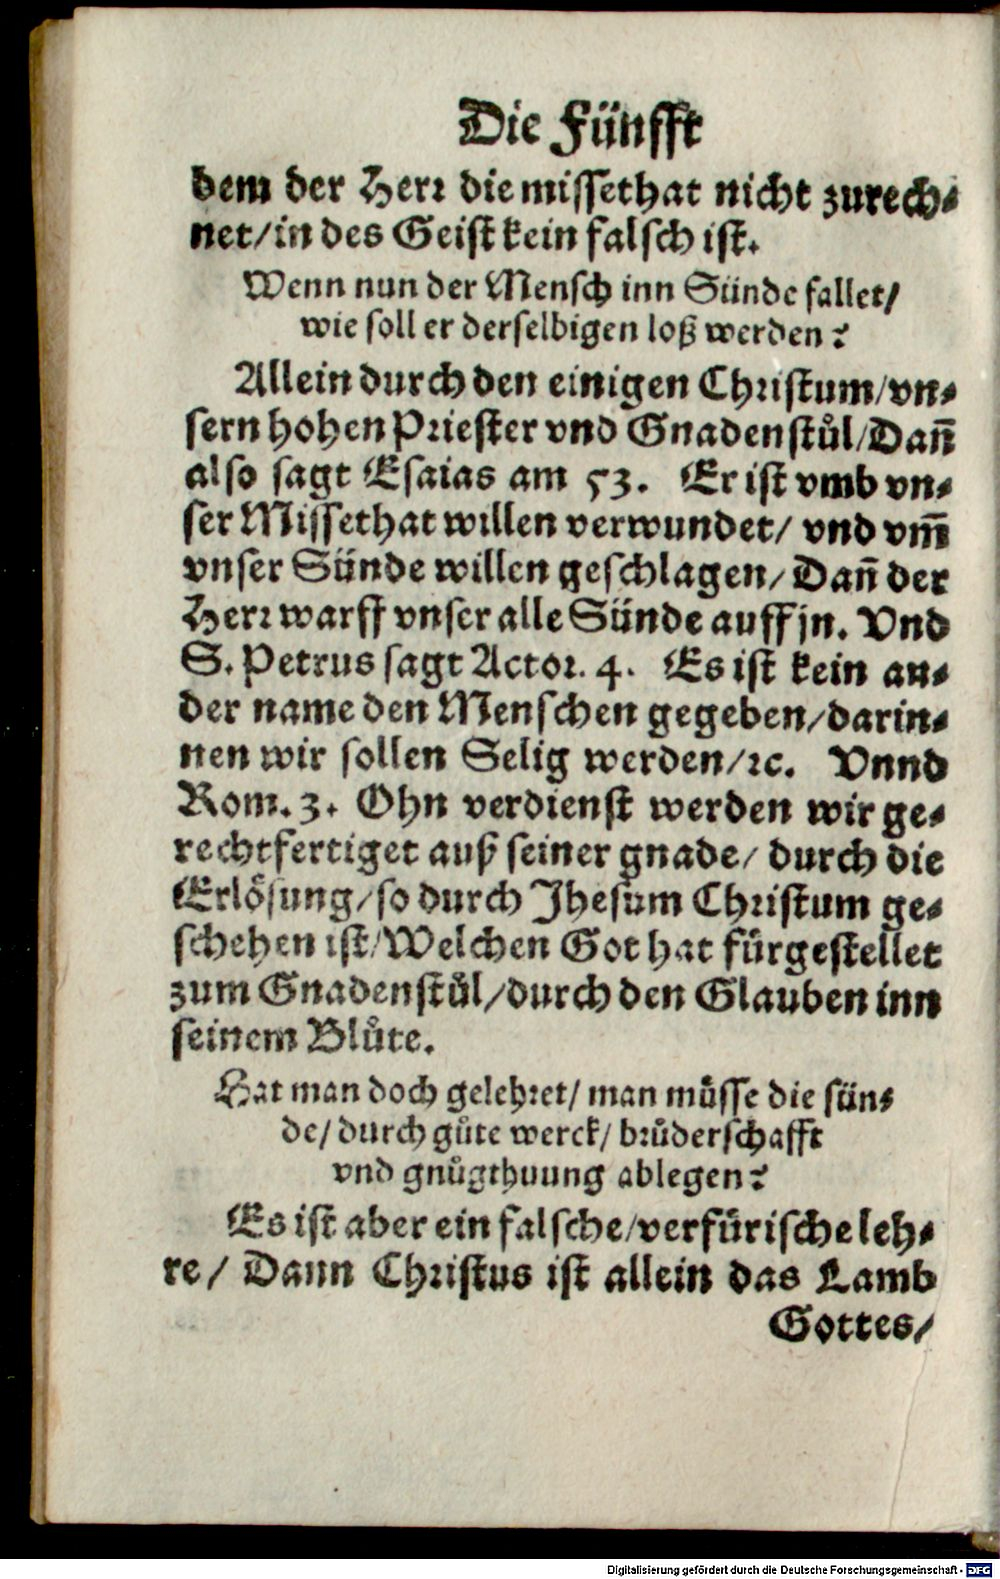 Die Fünfft
dem der Herr die missethat nicht zurech⸗
net/in des Geist kein falsch ist.
Wenn nun der Mensch inn Sünde fallet/
wie soll er derselbigen loß werden?
Allein durch den einigen Christum/vn⸗
sern hohen Priester vnd Gnadenstůl/Dañ
also sagt Esaias am 53. Er ist vmb vn⸗
ser Missethat willen verwundet/ vnd vm̄
vnser Sünde willen geschlagen/Dañ der
Herr warff vnser alle Sünde auff jn. Vnd
S. Petrus sagt Actor. 4. Es ist kein an⸗
der name den Menschen gegeben/darin⸗
nen wir sollen Selig werden/ꝛc. Vnnd
Rom. 3. Ohn verdienst werden wir ge⸗
rechtfertiget auß seiner gnade/ durch die
Erlösung/so durch Jhesum Christum ge⸗
schehen ist/Welchen Got hat fürgestellet
zum Gnadenstůl/durch den Glauben inn
seinem Blůte.
Hat man doch gelehret/ man müsse die sün⸗
de/ durch gůte werck/ brůderschafft
vnd gnůgthuung ablegen?
Es ist aber ein falsche/verfürische leh⸗
re/ Dann Christus ist allein das Lamb
Gottes/
Digitalisierung gefördert durch die Deutsche Forschungsgemeinschaft - DFG